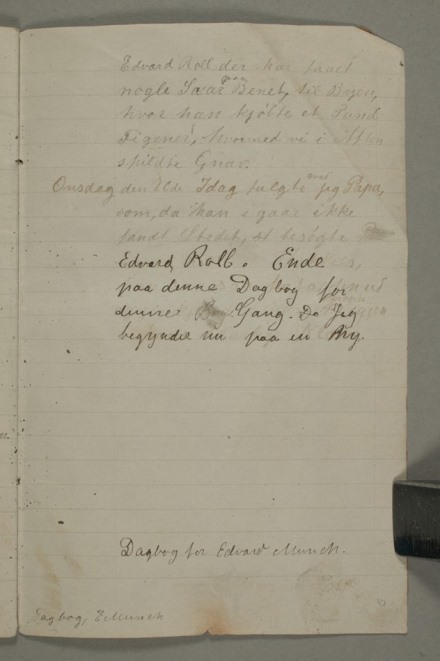 Edvard Roll der har faaet
nogle Saar paa Benet, til Byen,
hvor han kjøbte et Pund
Figener, hvormed vi i Aften
spildte Gnav.
Onsdag den Idag fulgte jeg med Papa,
som, da han igaar ikke
fandt Stedet, at besøgte
Edvard Roll. Ende
paa denne Dagbog for
denne Gang. Da Jeg
begynder nu paa en Ny.
Dagbog for Edvard Munch.
Dagbog, E Munch